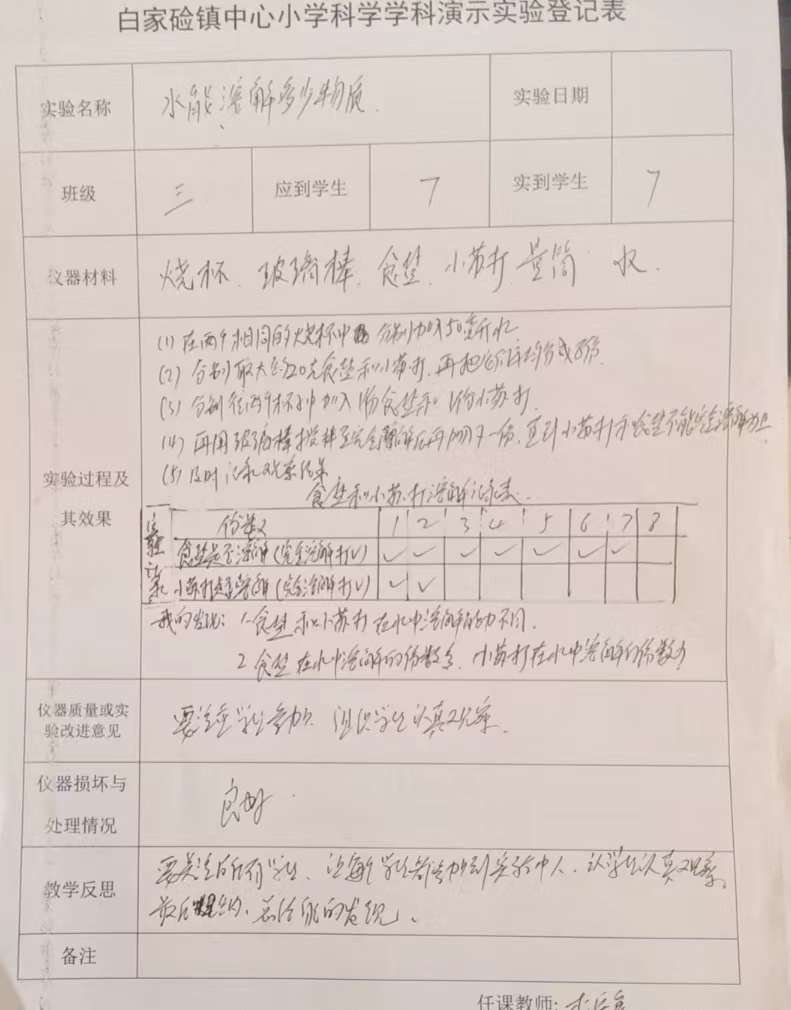 白家硷镇中心小学科学学科演示实验登记表
实验名称 水能溶解多少物质. 实验日期
班级 三 应到学生 7 实到学生 7
仪器材料 烧杯. 玻璃棒. 食盐. 小苏打 量筒 水.
(1) 在两个相同的烧杯中 分别加入50毫升水
(2) 分别取大约20克食盐和小苏打, 再把它们平均分成8份.
(3) 分别往两个杯中加入1份食盐和1份小苏打.
(4) 再用玻璃棒搅拌至完全溶解后再加入下一份, 直到小苏打和食盐不能完全溶解为止
(5) 及时记录观察结果.
实验过程及其效果
食盐和小苏打溶解记录表.
实验记录
份数 1 2 3 4 5 6 7 8
食盐是否溶解 (完全溶解打√) ✓ ✓ ✓ ✓ ✓ ✓ ✓
小苏打是否溶解 (完全溶解打√) ✓ ✓
我的发现: 1. 食盐和小苏打在水中溶解能力不同.
2 食盐在水中溶解的份数多, 小苏打在水中溶解的份数少
仪器质量或实验改进意见 要注重学生参加, 组织学生认真观察.
仪器损坏与处理情况 良好.
教学反思 要关注所有学生, 让每个学生都参加到实验中, 让学生认真观察,
最后归纳、总结我的发现.
备注
任课教师: